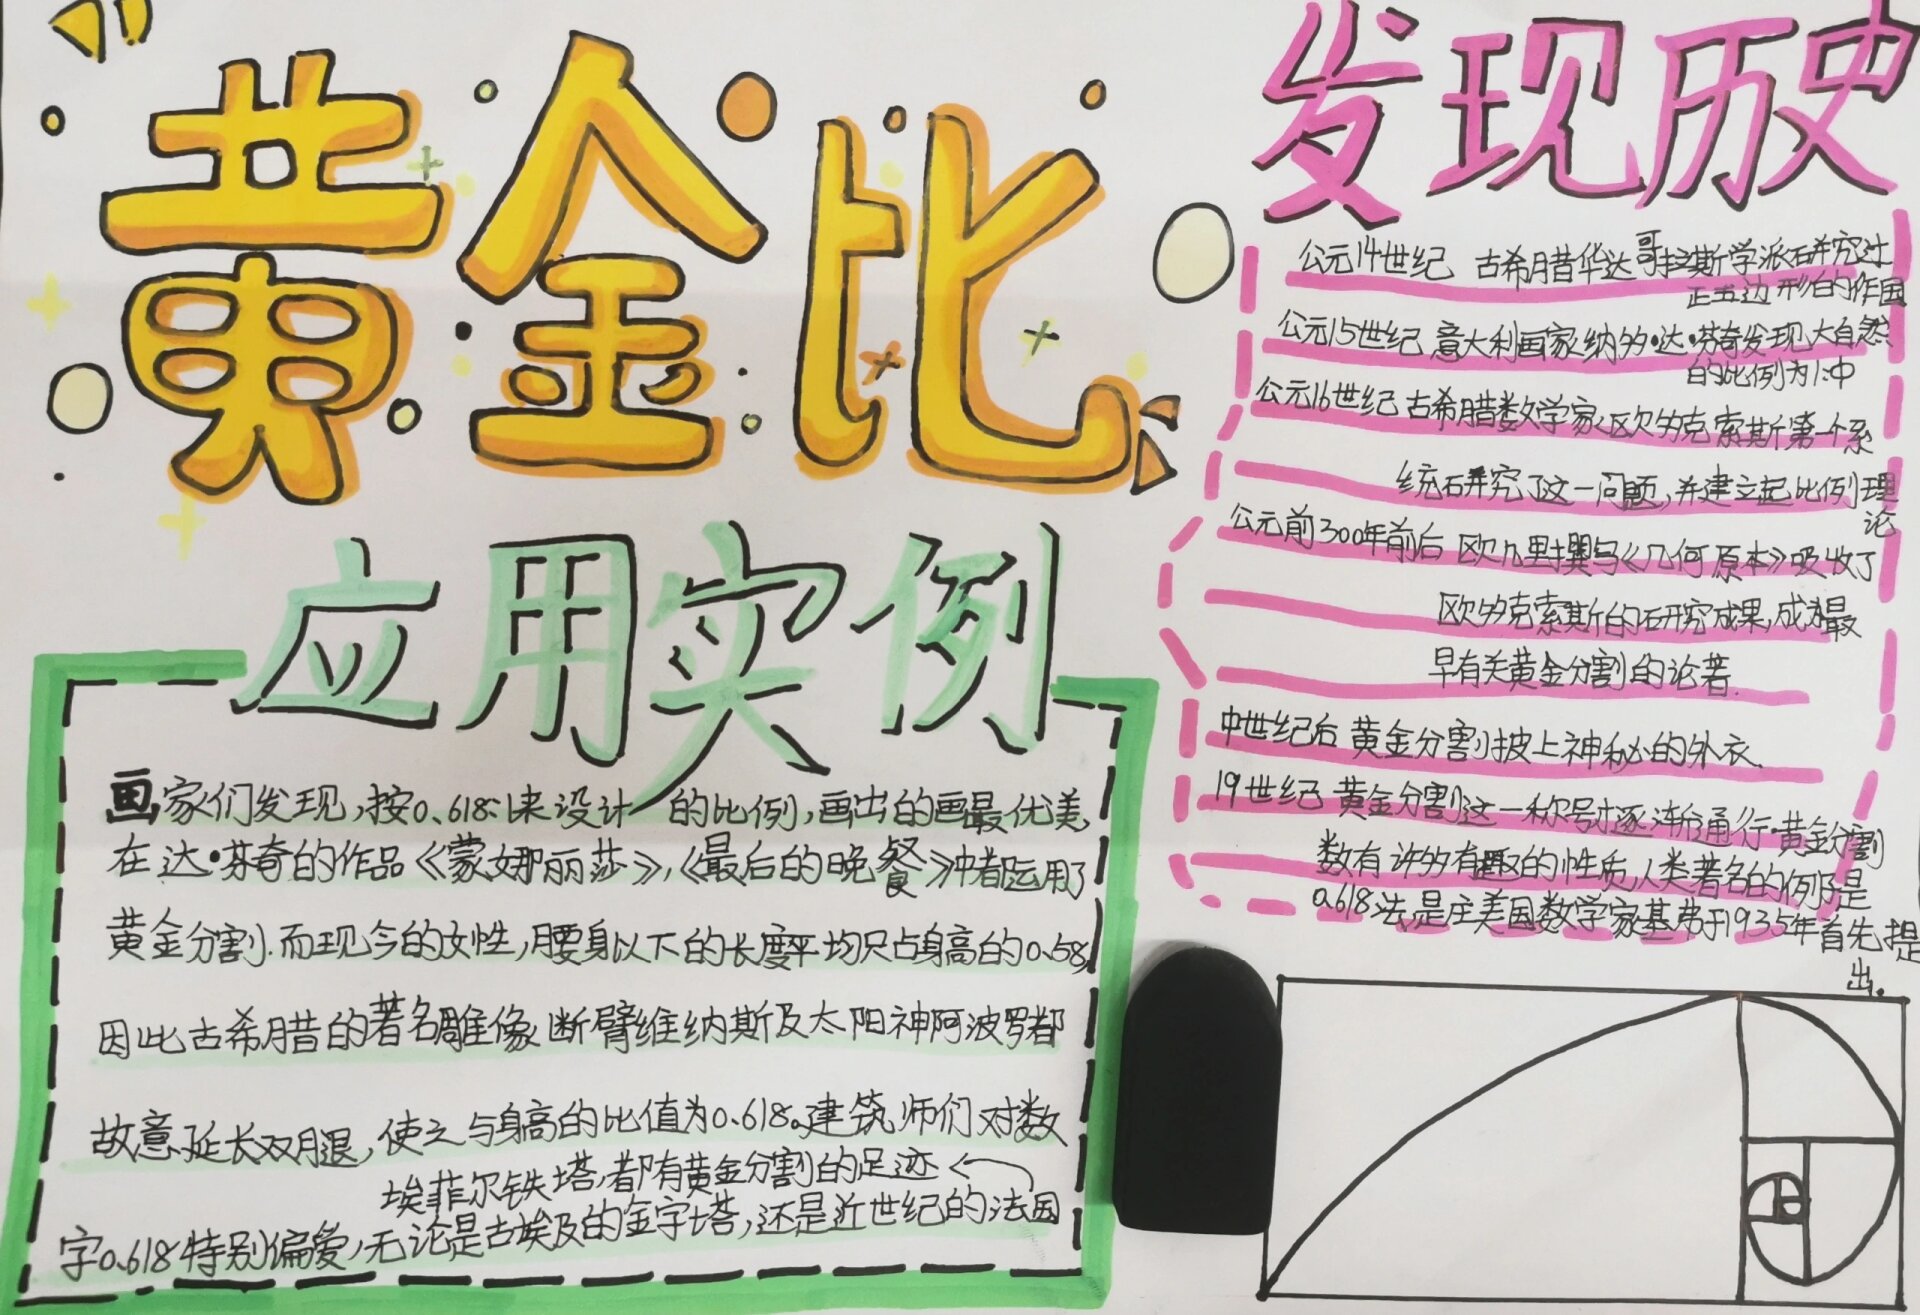 黄金比
应用实例
画家们发现,按0.618:1来设计的比例,画出的画最优美,
在达·芬奇的作品《蒙娜丽莎》,《最后的晚餐》中都运用了
黄金分割.而现今的女性,腰身以下的长度平均只占身高的0.58,
因此古希腊的著名雕像断臂维纳斯及太阳神阿波罗都
故意延长双腿,使之与身高的比值为0.618。建筑师们对数
字0.618特别偏爱,无论是古埃及的金字塔,还是近世纪的法国
埃菲尔铁塔,都有黄金分割的足迹
发现历史
公元14世纪 古希腊华达哥拉斯学派研究过
正五边形的作图
公元15世纪 意大利画家纳多·达·芬奇发现大自然
的比例为1:中
公元16世纪 古希腊数学家欧多克索斯第一个系
统研究了这一问题,并建立起比例理
论
公元前300年前后 欧几里撰写《几何原本》吸收了
欧多克索斯的研究成果,成为最
早有关黄金分割的论著.
中世纪后 黄金分割披上神秘的外衣.
19世纪 黄金分割这一称号逐渐通行.黄金分割
数有许多有趣的性质,人类著名的例是
0.618法,是庄美国数学家基弗于1935年首先提
出.